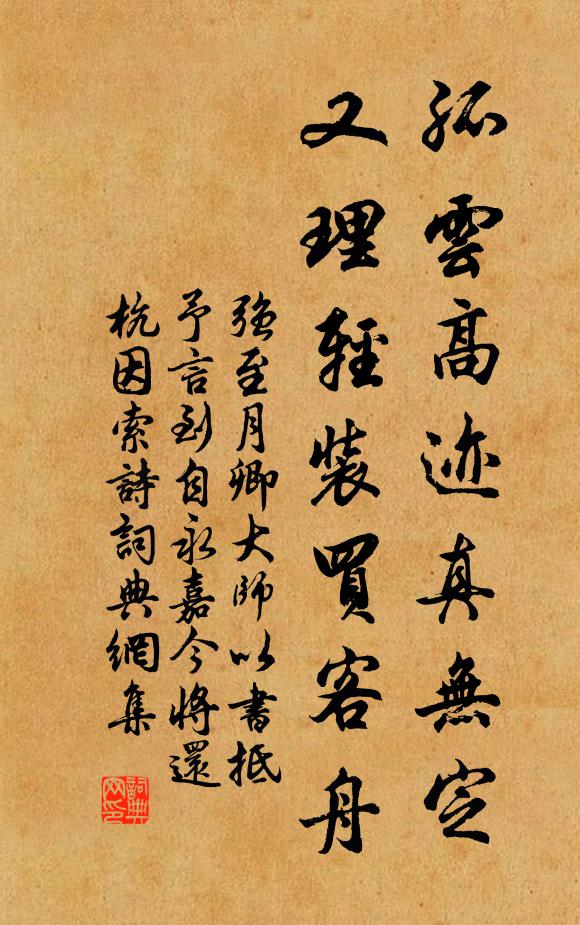 孤雲高迹真無定
又理輕裝買客舟
強至月卿大師以書抵
予言到自永嘉今將還
杭因索詩詞典網集
詞典网印